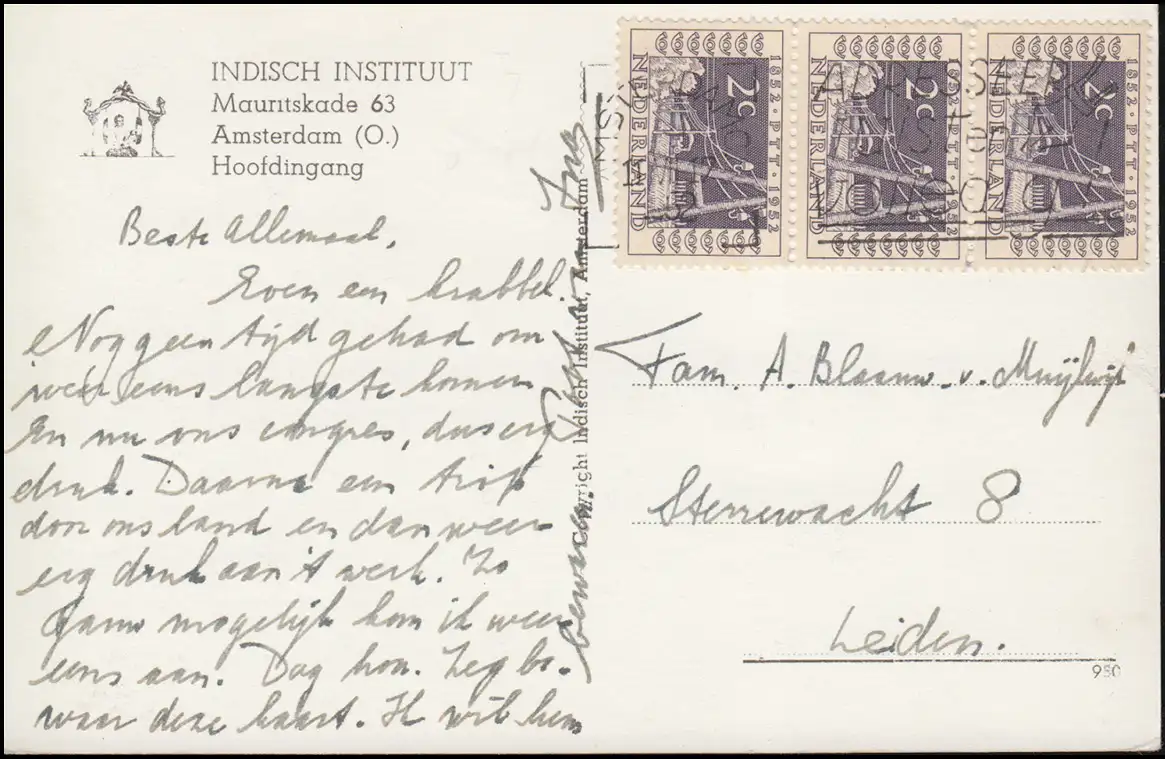 INDISCH INSTITUUT
Mauritskade 63
Amsterdam (O.)
Hoofdingang
Beste Allemaal,
Even een krabbel.
Nog geen tijd gehad om
weer eens langs te komen
En nu ons congres, dus erg
druk. Daarna een trip
door ons land en dan weer
erg druk aan 't werk. Zo
gauw mogelijk kom ik weer
eens aan. Dag hoor. Zeg be-
waar deze kaart. Ik wil hem
bewaren.
Copyright Indisch Instituut, Amsterdam
1852 · PTT · 1952
2c
NEDERLAND
1852 · PTT · 1952
2c
NEDERLAND
1852 · PTT · 1952
2c
NEDERLAND
Fam. A. Blaauw-v. Muijlwijk
Sterrewacht 8
Leiden.
980